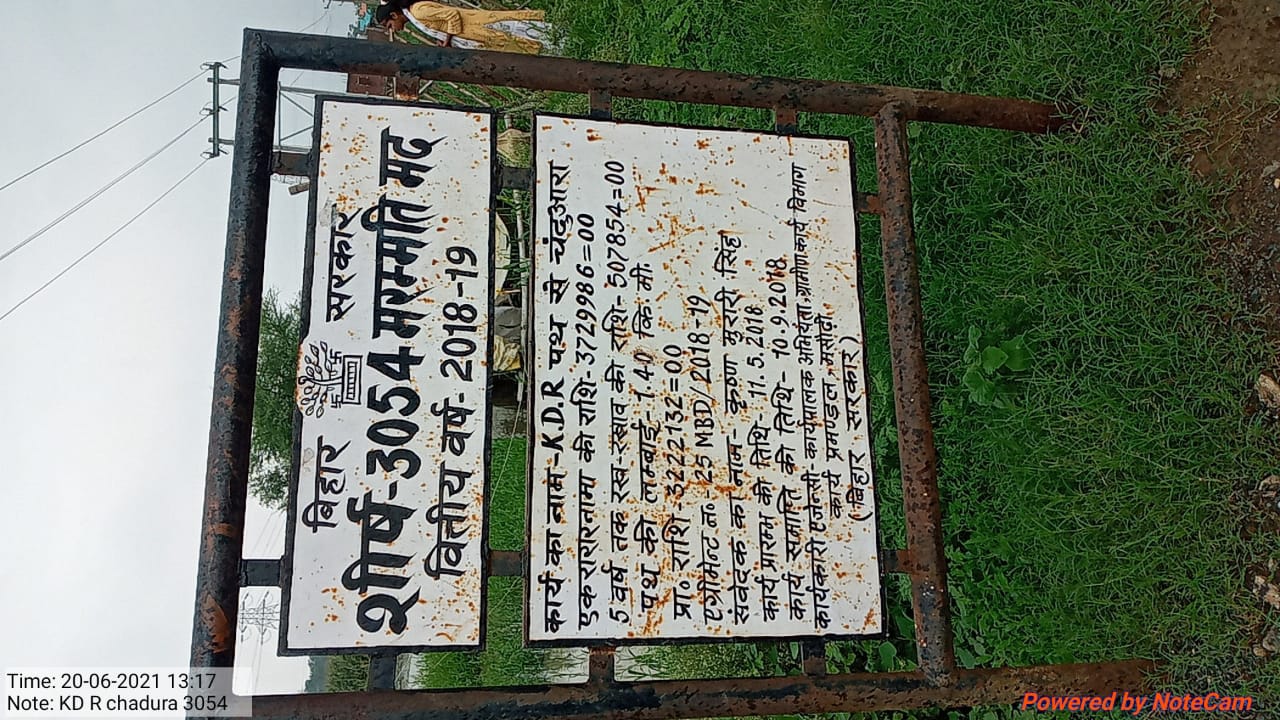 बिहार सरकार
शीर्ष-3054 मरम्मति मद
वितीय वर्ष- 2018-19
कार्य का नाम-K.D.R पथ से चंदुआरा
एकरारनामा की राशि-3729986=00
5 वर्ष तक रख रखाव की राशि- 507854=00
पथ की लम्बाई- 1.40 कि.मी.
प्रा० राशि-3222132=00
एग्रीमेन्ट नं०-25 MBD/2018-19
संवेदक का नाम- कृष्ण मुरारी सिंह
कार्य प्रारम्भ की तिथि 11.5.2018
कार्य समाप्ति की तिथि- 10.9.2018
कार्यकारी एजेन्सी- कार्यपालक अभियंता,ग्रामीण कार्य विभाग
कार्य प्रमण्डल, मसौढ़ी
(बिहार सरकार)
Time: 20-06-2021 13:17
Note: KD R chadura 3054
Powered by NoteCam